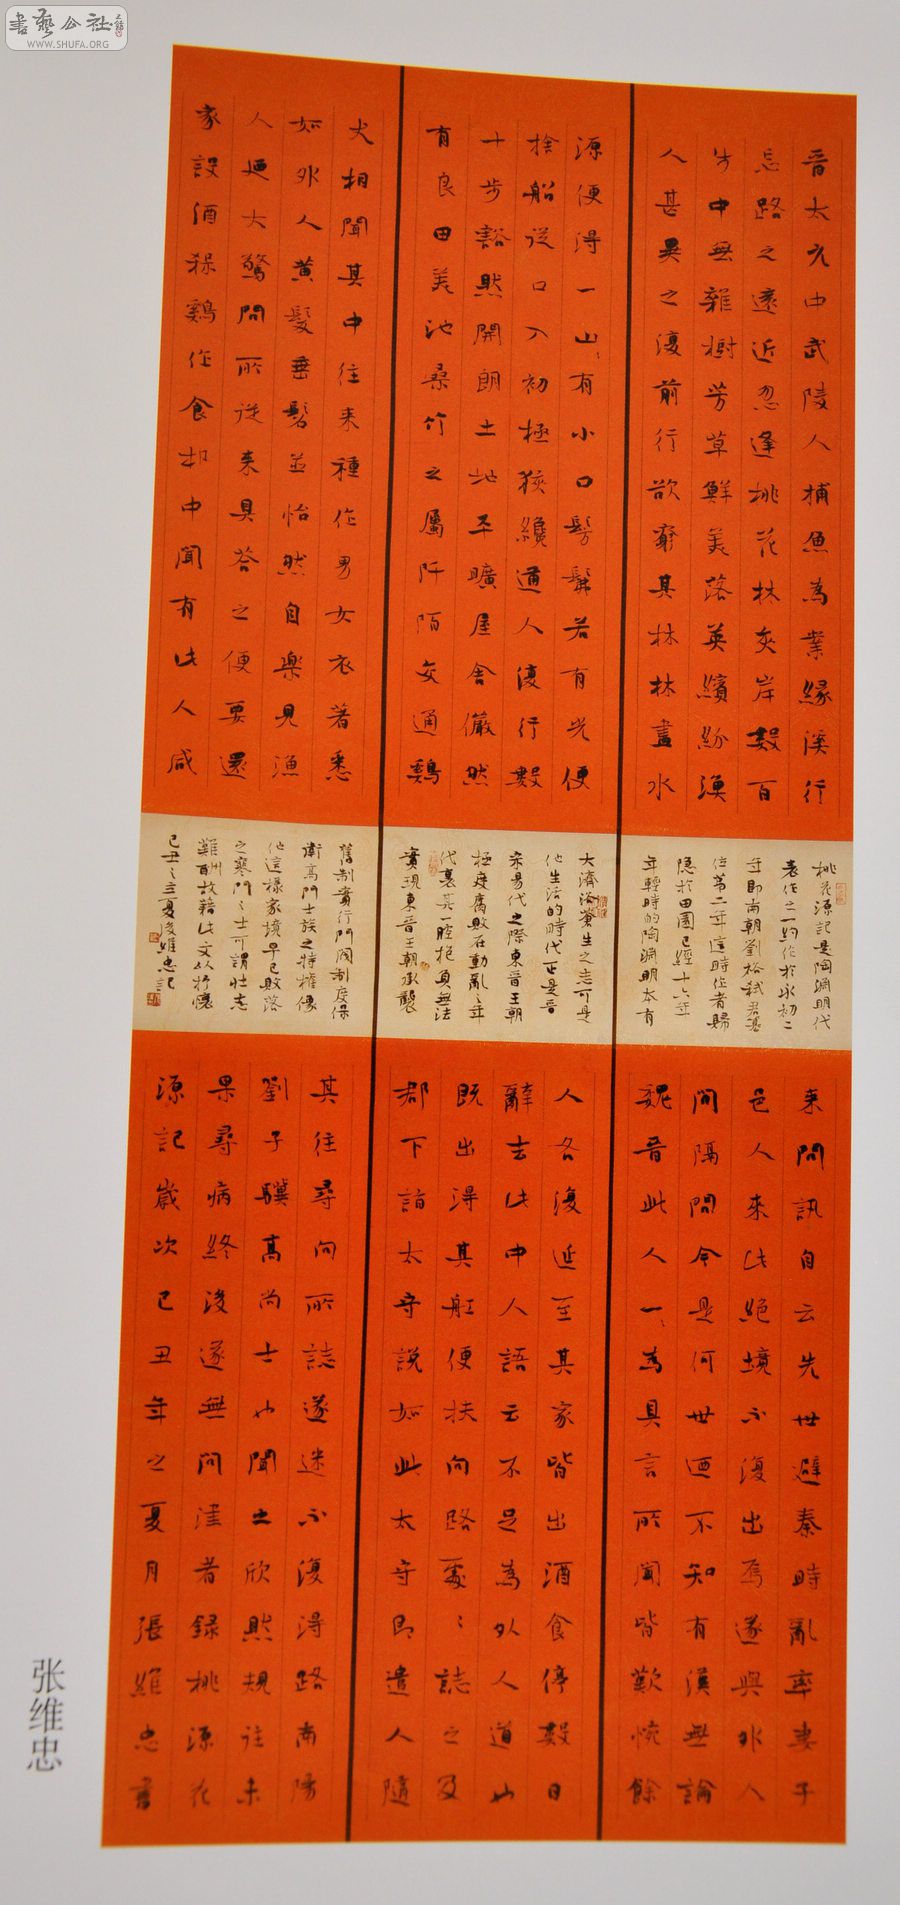 書藝公社
WWW.SHUFA.ORG
晉太元中武陵人捕魚為業緣溪行
忘路之遠近忽逢桃花林夾岸數百
步中無雜樹芳草鮮美落英繽紛漁
人甚異之復前行欲窮其林林盡水
源便得一山〻有小口髣髴若有光便
捨船從口入初極狹纔通人復行數
十步豁然開朗土地平曠屋舍儼然
有良田美池桑竹之屬阡陌交通鷄
犬相聞其中往來種作男女衣著悉
如外人黃髮垂髫並怡然自樂見漁
人迺大驚問所從來具荅之便要還
家設酒殺鷄作食邨中聞有此人咸
桃花源記是陶淵明代
表作之一約作於永初二
年即南朝劉裕弑君篡
位第二年這時作者歸
隱於田園已經十六年
年輕時的陶淵明本有
大濟滄蒼生之志可是
他生活的時代正是晉
宋易代之際東晉王朝
極度腐敗在動亂〻年
代裏其一腔抱負無法
實現東晉王朝承襲
舊制實行門閥制度保
衛高門士族之特權像
他這樣家境早已敗落
之寒門〻士可謂壯志
難酬故藉此文以抒懷
己丑〻立夏後維忠記
來問訊自云先世避秦時亂率妻子
邑人來此絕境不復出焉遂與外人
間隔問今是何世迺不知有漢無論
魏晉此人一〻為具言所聞皆歎惋餘
人各復延至其家皆出酒食停數日
辭去此中人語云不足為外人道也
既出得其舡便扶向路處〻誌之及
郡下詣太守說如此太守即遣人隨
其往尋向所誌遂迷不復得路南陽
劉子驥高尚士也聞之欣然規往未
果尋病終後遂無問津者錄桃源花
源記歲次己丑年之夏月張維忠書
张维忠